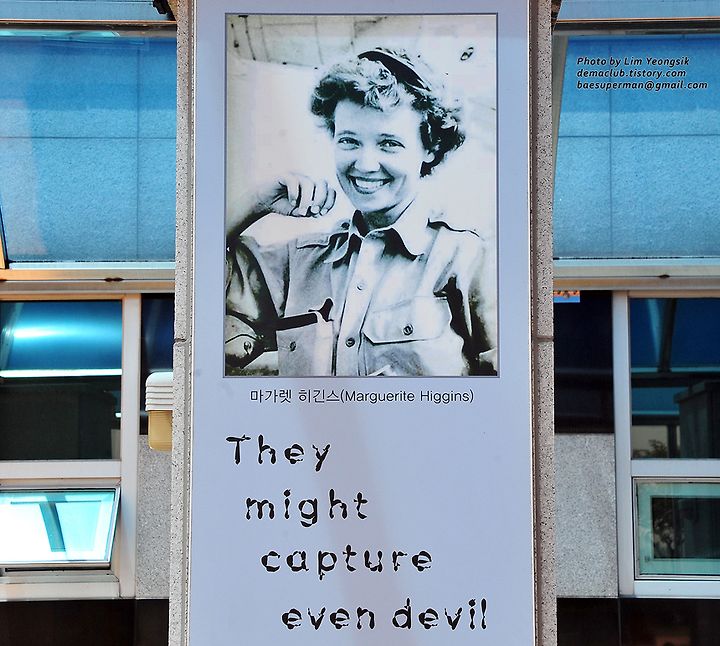 Photo by Lim Yeongsik
demaclub.tistory.com
baesuperman@gmail.com
마가렛 히긴스(Marguerite Higgins)
They
might
capture
even devil